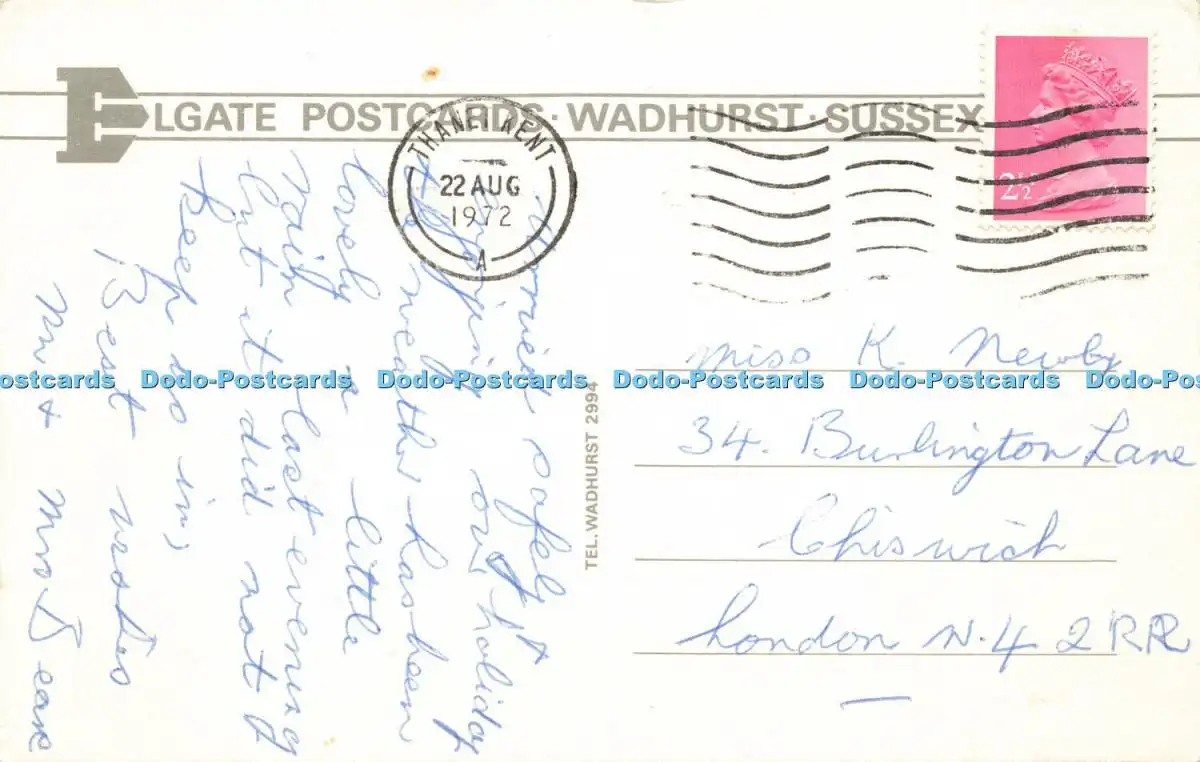 ELGATE POSTCARDS · WADHURST · SUSSEX
THANET KENT
22 AUG
1972
A
2½
Arrived safely &
enjoying our holiday
the weather has been
lovely a little
last evening
but it did not
keep us in,
Best wishes
Mr & Mrs
TEL. WADHURST 2994
Miss K. Newby
34. Burlington Lane
Chiswick
London W.4 2RR
Dodo-Postcards Dodo-Postcards Dodo-Postcards Dodo-Postcards Dodo-Postcards